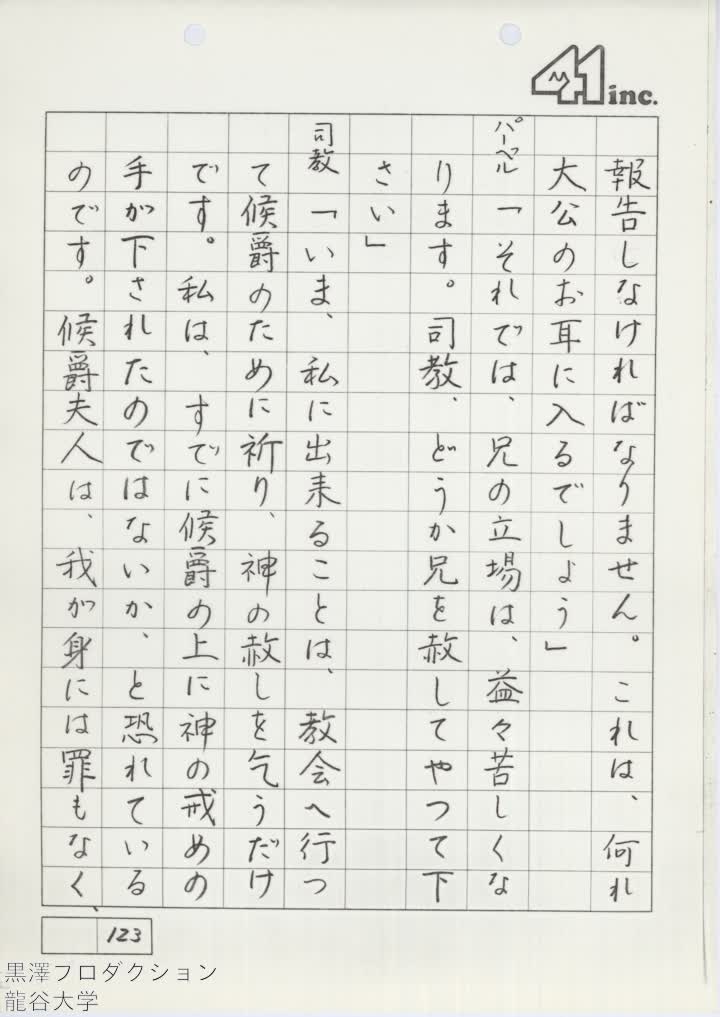 41 inc.
報告しなければなりません。これは、何れ
大公のお耳に入るでしょう」
パーベル「それでは、兄の立場は、益々苦しくな
ります。司教、どうか兄を赦してやつて下
さい」
司教「いま、私に出来ることは、教会へ行つ
て候爵のために祈り、神の赦しを乞うだけ
です。私は、すでに候爵の上に神の戒めの
手が下されたのではないか、と恐れている
のです。候爵夫人は、我が身には罪もなく、
123
黒澤プロダクション
龍谷大学